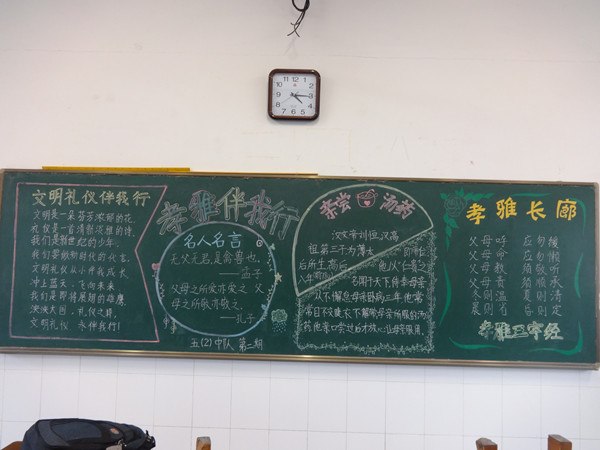 文明礼仪伴我行
文明是一朵芬芳浓郁的花,
礼仪是一首清新淡雅的诗,
我们是新世纪的少年,
我们要做新时代的主人,
文明礼仪从小伴我成长,
冲上蓝天,飞向未来,
我们是即将展翅的雄鹰,
泱泱大国,礼仪之邦,
文明礼仪,永伴我行!
孝雅伴我行
名人名言
无父无君,是禽兽也。
——孟子
父母之所爱亦爱之 父
母之所敬亦敬之
——孔子
五(2)中队 第二期
亲尝汤药
汉文帝刘恒,汉高
祖第三子,为薄太
后所生。高后 他以仁孝之
名闻于天下,侍奉母亲
从不懈怠。母亲卧病三年,他常
常目不交睫,衣不解带;母亲所服的汤
药,他亲口尝过后才放心让母亲服用。
孝雅长廊
父母呼 应勿缓
父母命 行勿懒
父母教 须敬听
父母责 须顺承
冬则温 夏则凊
晨则省 昏则定
孝雅三字经